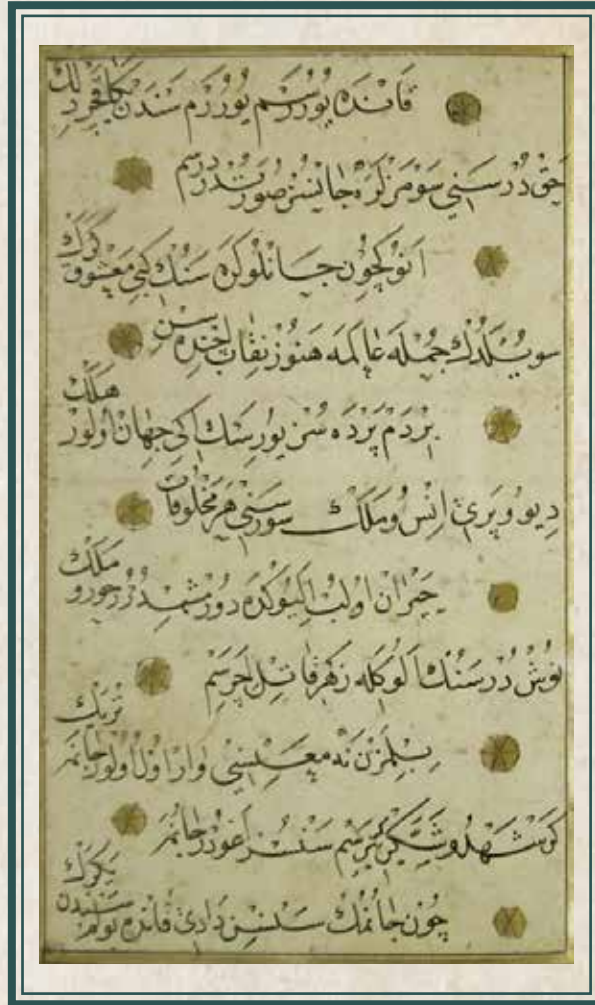 قانده يوررسم يوررم سندن
حق دُر سني سومزلره جانسز صورتدر درسم
انوكچون جانلوكره سنك كبي معشوق كرك
سويلدك جمله عالمه هنوز نقاب اچنده سن
بردم پرده سز يورسك اكي جهان اولور هلك
ديو و پري انس و ملك سور سني هر مخلوقات
حيران اولب الكوكده دورمشدرر حورو ملك
نوش دُر سنك الوكله زهر قاتل اچرسم
بيلمزن نه معنيسي وار اول اولور جانمه تريك
كر شهد و شكر ييرسم سنسز آغودر جانمه
چون جانمك سنسن دادي قانده بولم سندن يكرك